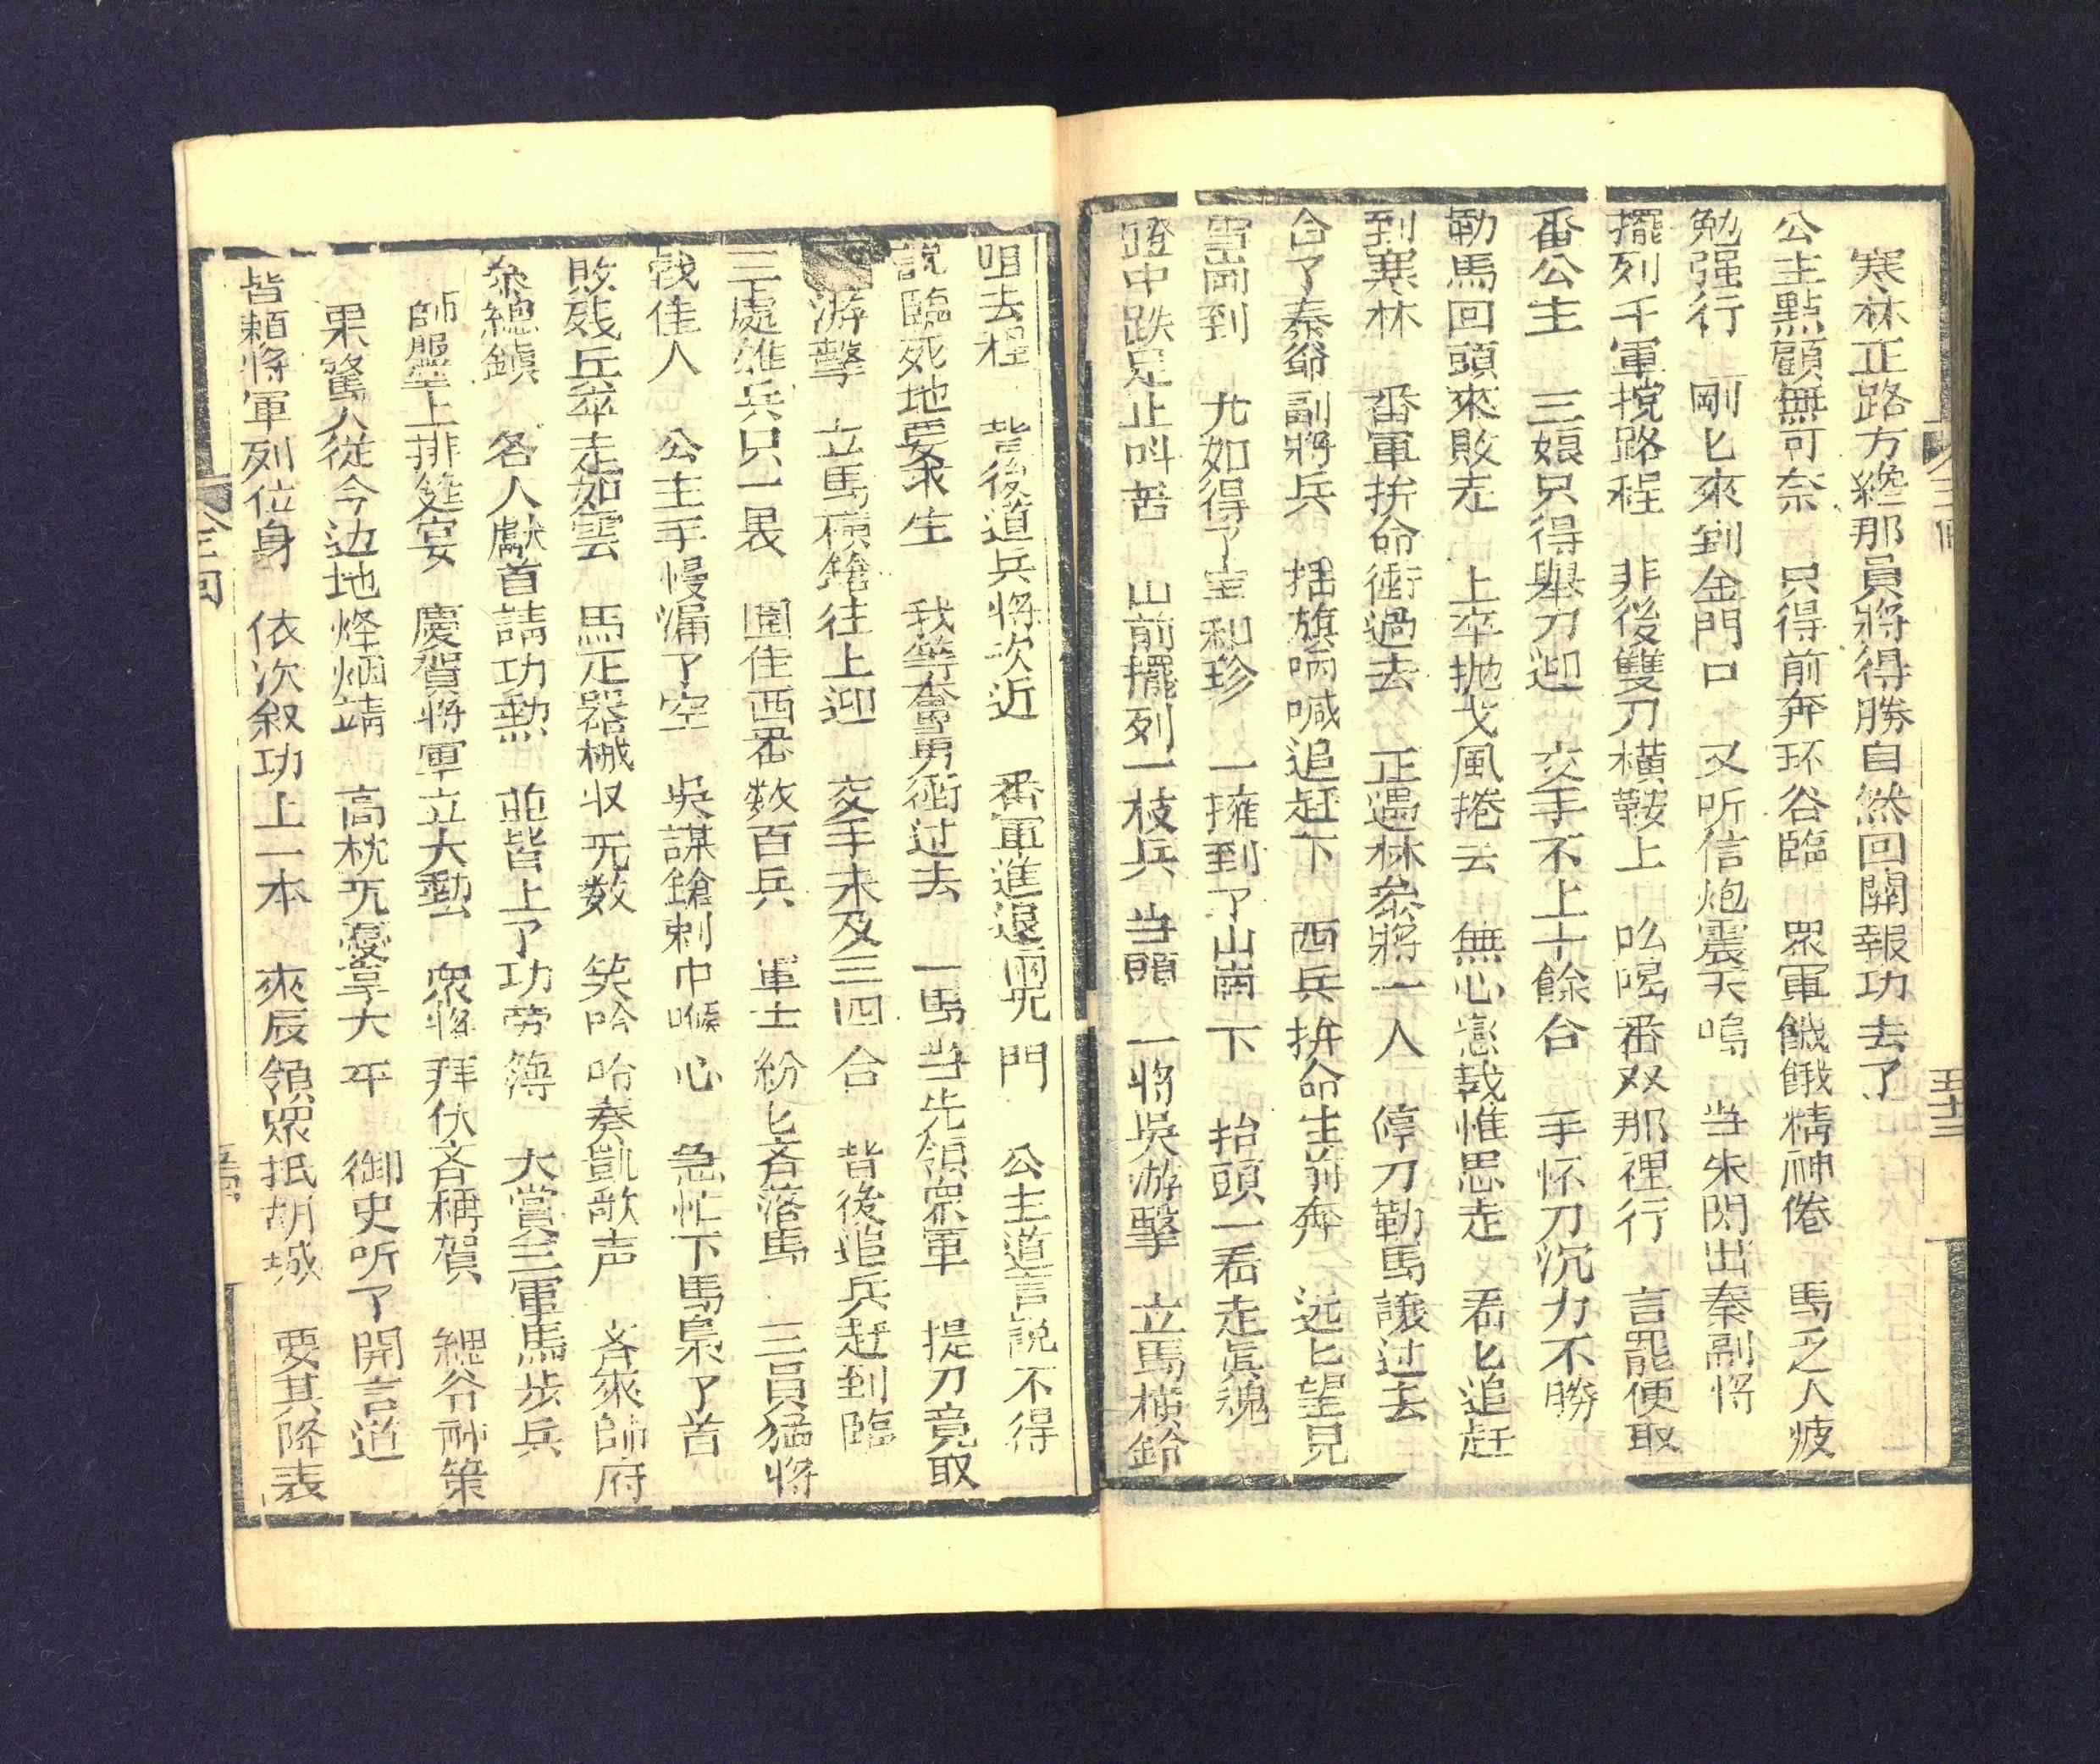 寒林正路方纔那員將得勝自然回關報功去了
公主點顧無可奈 只得前奔环谷臨 眾軍饑餓精神倦 馬乏人疲
勉强行 剛匕來到金門口 又听信炮震天鳴 当先閃出秦副将
擺列千軍攪路程 非後雙刀橫鞍上 吆喝番奴那裡行 言罷便取
番公主 三娘只得舉刀迎 交手不上十餘合 手怀刀沉力不勝
勒馬回頭來敗走 上卒抛戈風捲云 無心戀哉惟思走 看匕追赶
到寒林 番軍拚命衝過去 正遇林叅將一人 停刀勒馬讓过去
合了秦爺副將兵 揺旗吶喊追赶下 西兵拚命生前奔 远匕望見
崗到 九如得了宝和珍 一擁到了山崗下 抬頭一看走真魂
蹬中跌足止呌苦 山前擺列一枝兵 当頭一将吳游擊 立馬橫鈴
咀去程 背後道兵將次近 番軍進退兩 門 公主道言說不得
說臨死地要求生 我等奮勇衝过去 一馬当先領眾軍 提刀竟取
游擊 立馬横鎗往上迎 交手未及三四合 背後追兵赶到臨
三處雄兵只一晨 圍住西番数百兵 軍士紛匕吝落馬 三員猛将
戗佳人 公主手慢漏了空 吳謀鎗刺中喉心 急忙下馬梟了首
敗残丘卒走如雲 馬疋器械収旡数 笑哈哈奏凱歌声 吝來帥府
叅總鎮 各人獻首請功勲 並皆上了功劳簿 大賞三軍馬步兵
師壂上排筵宴 慶賀將軍立大勳 眾将拜伏吝稱賀 總谷神策
果驚人從今边地烽烟靖 高枕旡憂享大平 御史听了開言道
皆頼將軍列位身 依次叙功上一本 來辰領眾抵胡城 要其降表